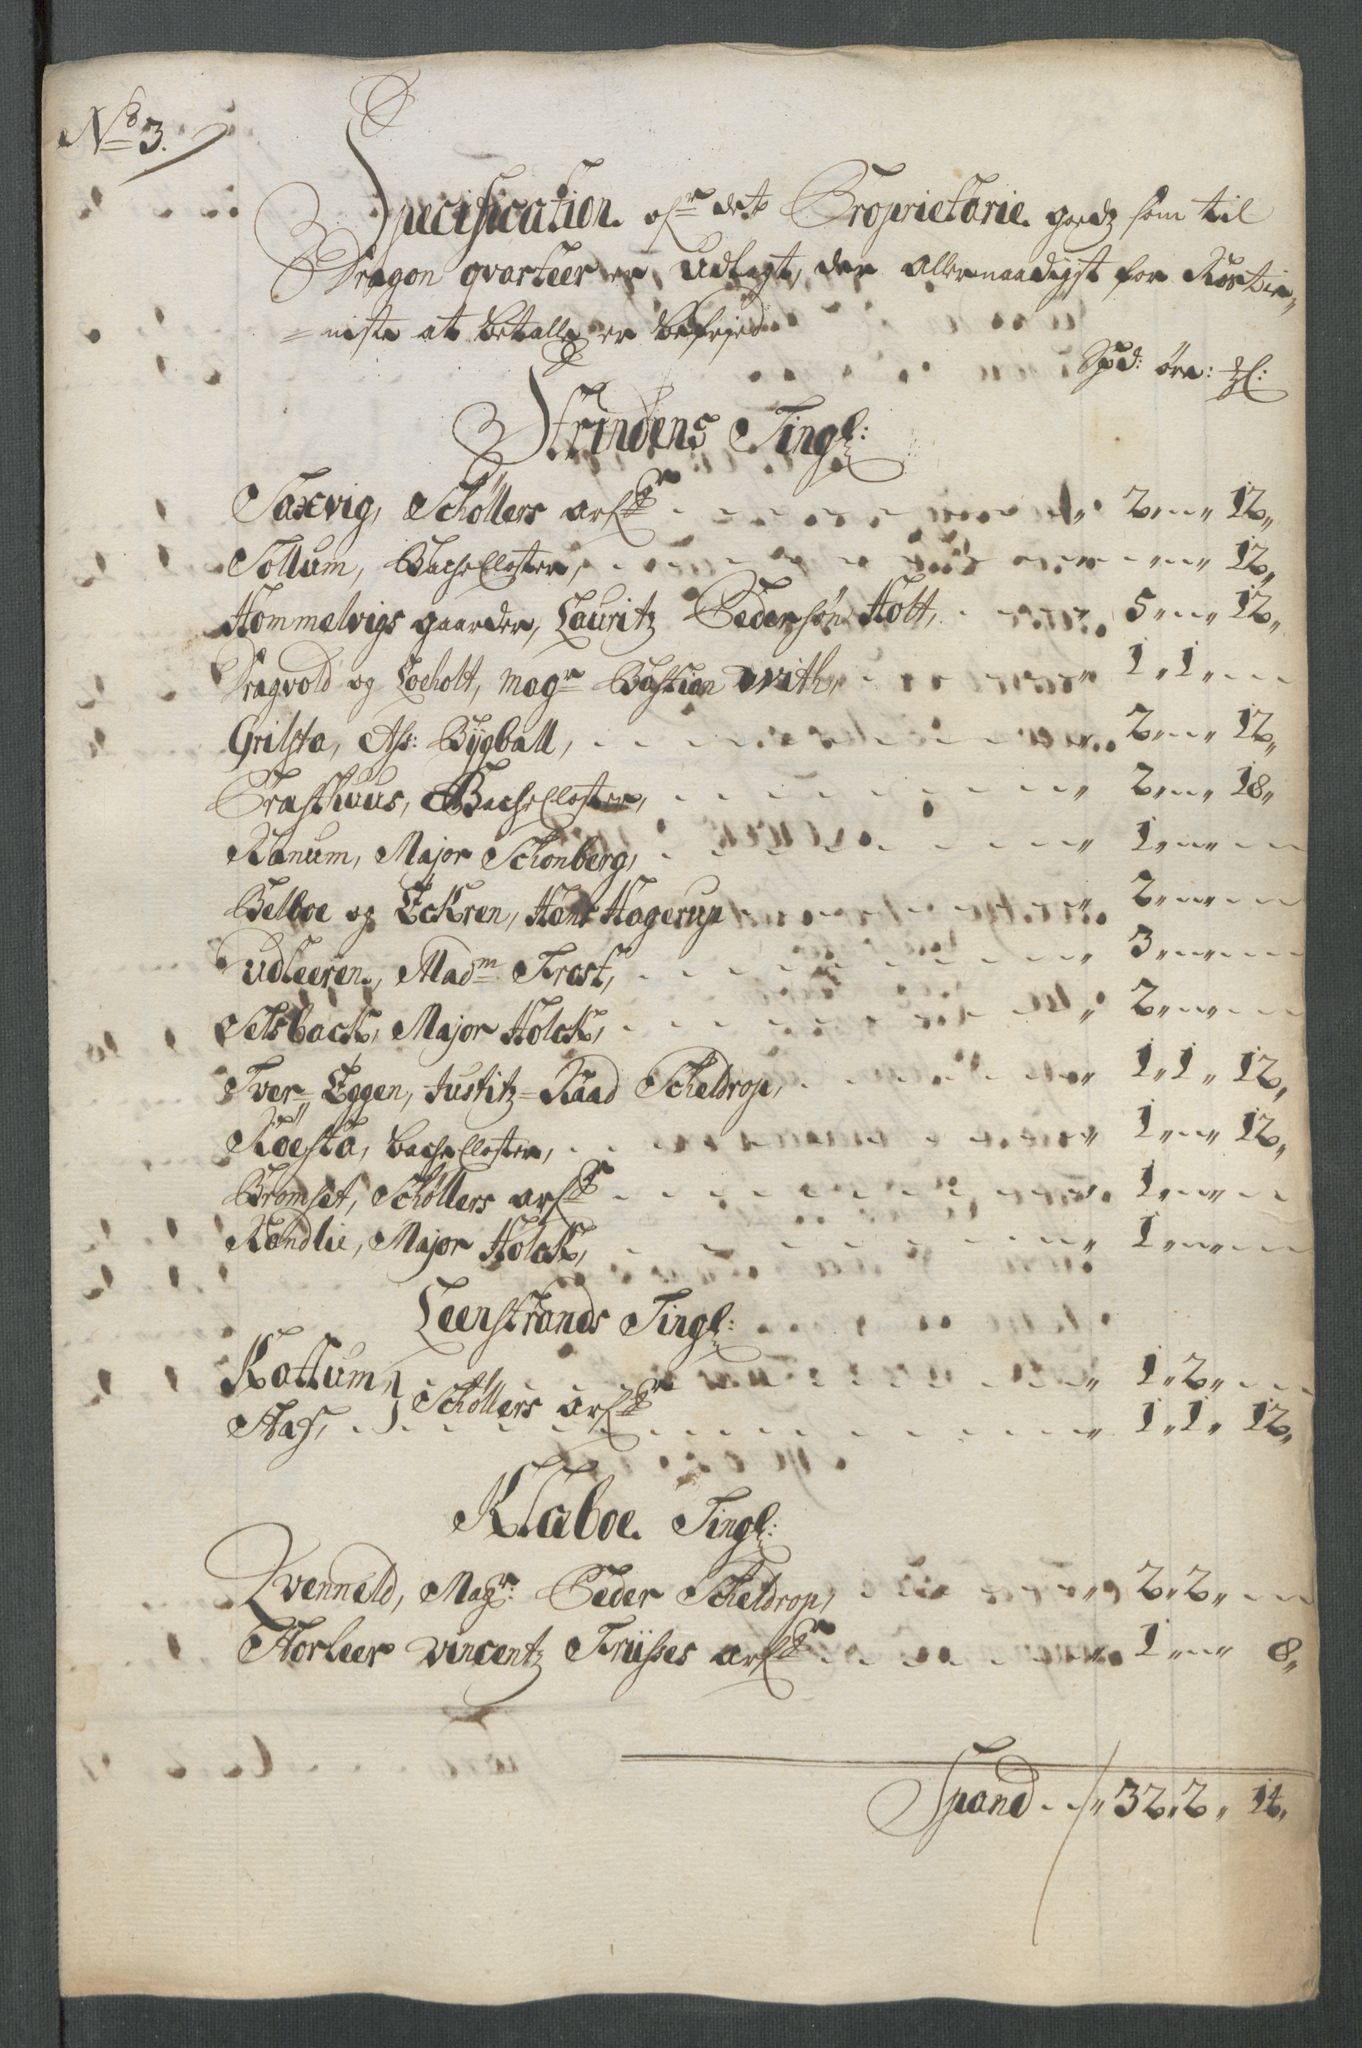 No 3.
Specification ofr det Proprietarie godz som til
Dragon qvarteer er Udlagt, der allernaadigst for Rostie-
=niste at betalle er befrjed
Spd: öre: #l:
Strindens Tingl:
Saxvig, Schöllers arf. 2 „ - „ 12 „
Sollum, Bache Closter, - „ - „ 12 „
Hommelvigs gaarder, Lauritz Pedersön Holt, 5 „ - „ 12 „
Dragvold og Loeholt, Magr Bastian With, 1 „ 1 „ -
Grilsta, Ass: Bygball, 2 „ - „ 12 „
Prasthuus, Bache Closter, 2 „ - „ 18 „
Ranum, Major Schonberg, 1 „ - „ -
Belboe og Eckren, Hans Hagerup 2 „ - „ -
Udleeren, Madm Frost, 3 „ - „ -
Selsback, Major Holck, 2 „ - „ -
Tver= Eggen, Justitz=Raad Scheldrop, 1 „ 1 „ 12 „
Roesta, Bache Closter, 1 „ - „ 12 „
Bromset, Schöllers arf. 1 „ - „ -
Randlie, Major Holck, 1 „ - „ -
Leenstrands Tingl:
Rottum, } 1 „ 2 „ -
Schöllers arf.
Haf, } 1 „ 1 „ 12 „
Klaboe Tingl:
Qvenneld, Magr: Peder Scheldrop, 2 „ 2 „ -
Horleer Vincentz Friisses arf. 1 „ - „ 8 „
Spand 32 „ 2 „ 14 „